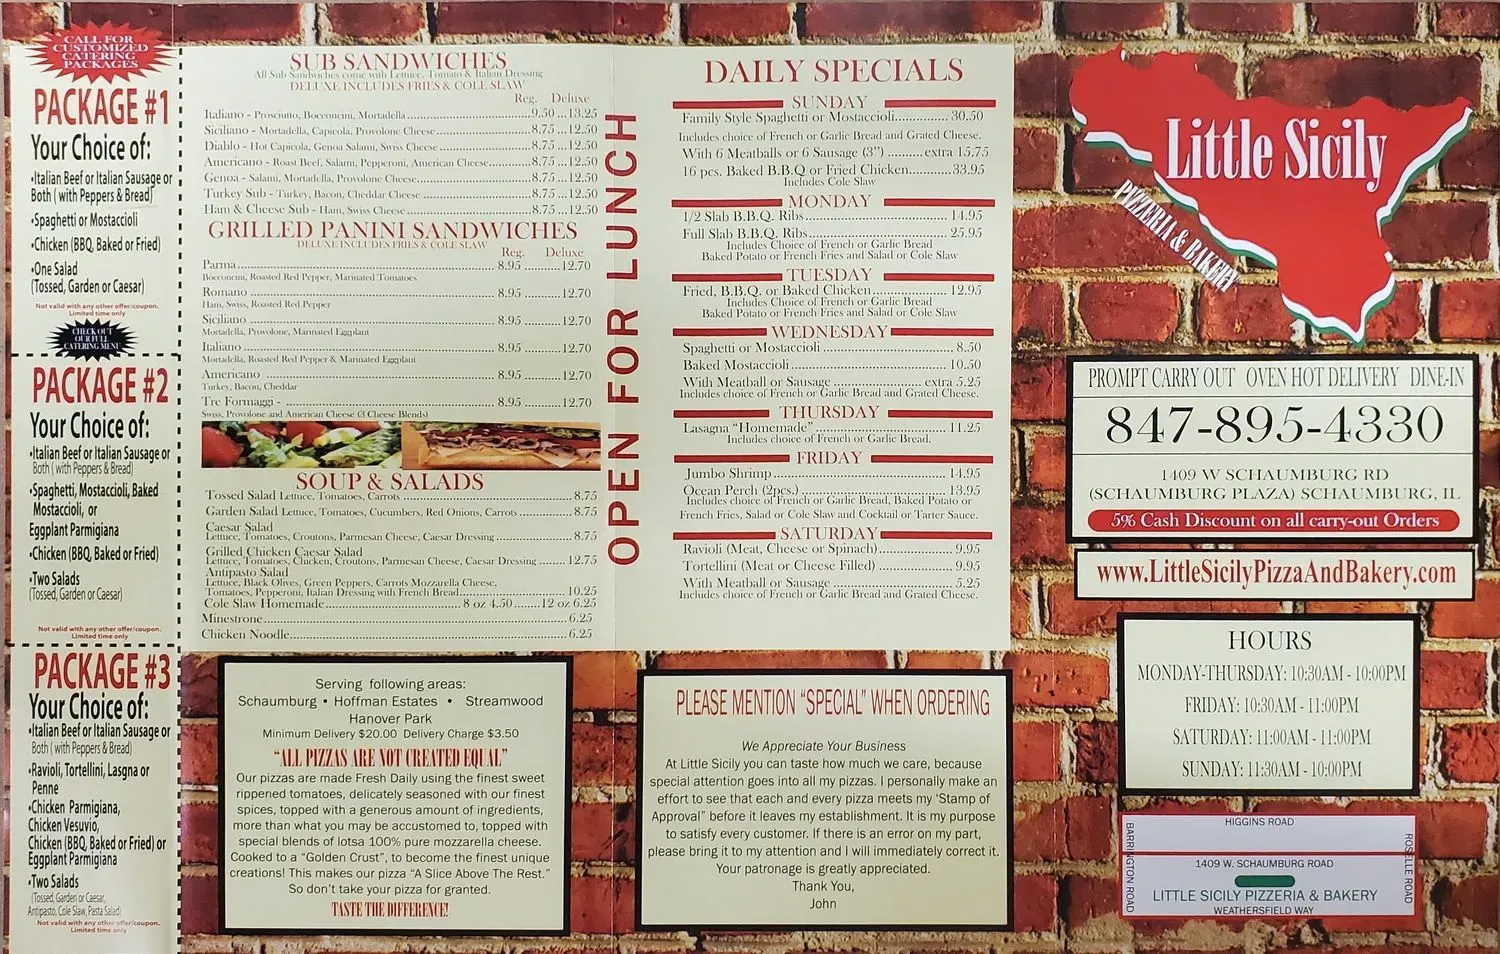 CALL FOR
CUSTOMIZED
CATERING
PACKAGES
PACKAGE #1
Your Choice of:
•Italian Beef or Italian Sausage or
Both ( with Peppers & Bread)
•Spaghetti or Mostaccioli
•Chicken (BBQ, Baked or Fried)
•One Salad
(Tossed, Garden or Caesar)
Not valid with any other offer/coupon.
Limited time only
CHECK OUT
OUR FULL
CATERING MENU
PACKAGE #2
Your Choice of:
•Italian Beef or Italian Sausage or
Both ( with Peppers & Bread)
•Spaghetti, Mostaccioli, Baked
Mostaccioli, or
Eggplant Parmigiana
•Chicken (BBQ, Baked or Fried)
•Two Salads
(Tossed, Garden or Caesar)
Not valid with any other offer/coupon.
Limited time only
PACKAGE #3
Your Choice of:
•Italian Beef or Italian Sausage or
Both ( with Peppers & Bread)
•Ravioli, Tortellini, Lasgna or
Penne
•Chicken Parmigiana,
Chicken Vesuvio,
Chicken (BBQ, Baked or Fried) or
Eggplant Parmigiana
•Two Salads
(Tossed, Garden or Caesar,
Antipasto, Cole Slaw, Pasta Salad)
Not valid with any other offer/coupon.
Limited time only
SUB SANDWICHES
All Sub Sandwiches come with Lettuce, Tomato & Italian Dressing
DELUXE INCLUDES FRIES & COLE SLAW
Reg. Deluxe
Italiano - Prosciutto, Bocconcini, Mortadella ... 9.50 ... 13.25
Siciliano - Mortadella, Capicola, Provolone Cheese ... 8.75 ... 12.50
Diablo - Hot Capicola, Genoa Salami, Swiss Cheese ... 8.75 ... 12.50
Americano - Roast Beef, Salami, Pepperoni, American Cheese ... 8.75 ... 12.50
Genoa - Salami, Mortadella, Provolone Cheese ... 8.75 ... 12.50
Turkey Sub - Turkey, Bacon, Cheddar Cheese ... 8.75 ... 12.50
Ham & Cheese Sub - Ham, Swiss Cheese ... 8.75 ... 12.50
GRILLED PANINI SANDWICHES
DELUXE INCLUDES FRIES & COLE SLAW
Reg. Deluxe
Parma ... 8.95 ... 12.70
Bocconcini, Roasted Red Pepper, Marinated Tomatoes
Romano ... 8.95 ... 12.70
Ham, Swiss, Roasted Red Pepper
Siciliano ... 8.95 ... 12.70
Mortadella, Provolone, Marinated Eggplant
Italiano ... 8.95 ... 12.70
Mortadella, Roasted Red Pepper & Marinated Eggplant
Americano ... 8.95 ... 12.70
Turkey, Bacon, Cheddar
Tre Formaggi - ... 8.95 ... 12.70
Swiss, Provolone and American Cheese (3 Cheese Blends)
SOUP & SALADS
Tossed Salad Lettuce, Tomatoes, Carrots ... 8.75
Garden Salad Lettuce, Tomatoes, Cucumbers, Red Onions, Carrots ... 8.75
Caesar Salad
Lettuce, Tomatoes, Croutons, Parmesan Cheese, Caesar Dressing ... 8.75
Grilled Chicken Caesar Salad
Lettuce, Tomatoes, Chicken, Croutons, Parmesan Cheese, Caesar Dressing ... 12.75
Antipasto Salad
Lettuce, Black Olives, Green Peppers, Carrots Mozzarella Cheese,
Tomatoes, Pepperoni, Italian Dressing with French Bread ... 10.25
Cole Slaw Homemade ... 8 oz 4.50 ... 12 oz 6.25
Minestrone ... 6.25
Chicken Noodle ... 6.25
OPEN FOR LUNCH
DAILY SPECIALS
SUNDAY
Family Style Spaghetti or Mostaccioli ... 30.50
Includes choice of French or Garlic Bread and Grated Cheese.
With 6 Meatballs or 6 Sausage (3") ... extra 15.75
16 pcs. Baked B.B.Q or Fried Chicken ... 33.95
Includes Cole Slaw
MONDAY
1/2 Slab B.B.Q. Ribs ... 14.95
Full Slab B.B.Q. Ribs ... 25.95
Includes Choice of French or Garlic Bread
Baked Potato or French Fries and Salad or Cole Slaw
TUESDAY
Fried, B.B.Q. or Baked Chicken ... 12.95
Includes Choice of French or Garlic Bread
Baked Potato or French Fries and Salad or Cole Slaw
WEDNESDAY
Spaghetti or Mostaccioli ... 8.50
Baked Mostaccioli ... 10.50
With Meatball or Sausage ... extra 5.25
Includes choice of French or Garlic Bread and Grated Cheese.
THURSDAY
Lasagna "Homemade" ... 11.25
Includes choice of French or Garlic Bread.
FRIDAY
Jumbo Shrimp ... 14.95
Ocean Perch (2pcs.) ... 13.95
Includes choice of French or Garlic Bread, Baked Potato or
French Fries, Salad or Cole Slaw and Cocktail or Tarter Sauce.
SATURDAY
Ravioli (Meat, Cheese or Spinach) ... 9.95
Tortellini (Meat or Cheese Filled) ... 9.95
With Meatball or Sausage ... 5.25
Includes choice of French or Garlic Bread and Grated Cheese.
Serving following areas:
Schaumburg • Hoffman Estates • Streamwood
Hanover Park
Minimum Delivery $20.00 Delivery Charge $3.50
"ALL PIZZAS ARE NOT CREATED EQUAL"
Our pizzas are made Fresh Daily using the finest sweet
rippened tomatoes, delicately seasoned with our finest
spices, topped with a generous amount of ingredients,
more than what you may be accustomed to, topped with
special blends of lotsa 100% pure mozzarella cheese.
Cooked to a "Golden Crust", to become the finest unique
creations! This makes our pizza "A Slice Above The Rest."
So don't take your pizza for granted.
TASTE THE DIFFERENCE!
PLEASE MENTION "SPECIAL" WHEN ORDERING
We Appreciate Your Business
At Little Sicily you can taste how much we care, because
special attention goes into all my pizzas. I personally make an
effort to see that each and every pizza meets my 'Stamp of
Approval" before it leaves my establishment. It is my purpose
to satisfy every customer. If there is an error on my part,
please bring it to my attention and I will immediately correct it.
Your patronage is greatly appreciated.
Thank You,
John
Little Sicily
PIZZERIA & BAKERY
PROMPT CARRY OUT OVEN HOT DELIVERY DINE-IN
847-895-4330
1409 W SCHAUMBURG RD
(SCHAUMBURG PLAZA) SCHAUMBURG, IL
5% Cash Discount on all carry-out Orders
www.LittleSicilyPizzaAndBakery.com
HOURS
MONDAY-THURSDAY: 10:30AM - 10:00PM
FRIDAY: 10:30AM - 11:00PM
SATURDAY: 11:00AM - 11:00PM
SUNDAY: 11:30AM - 10:00PM
HIGGINS ROAD
BARRINGTON ROAD
ROSELLE ROAD
1409 W. SCHAUMBURG ROAD
LITTLE SICILY PIZZERIA & BAKERY
WEATHERSFIELD WAY